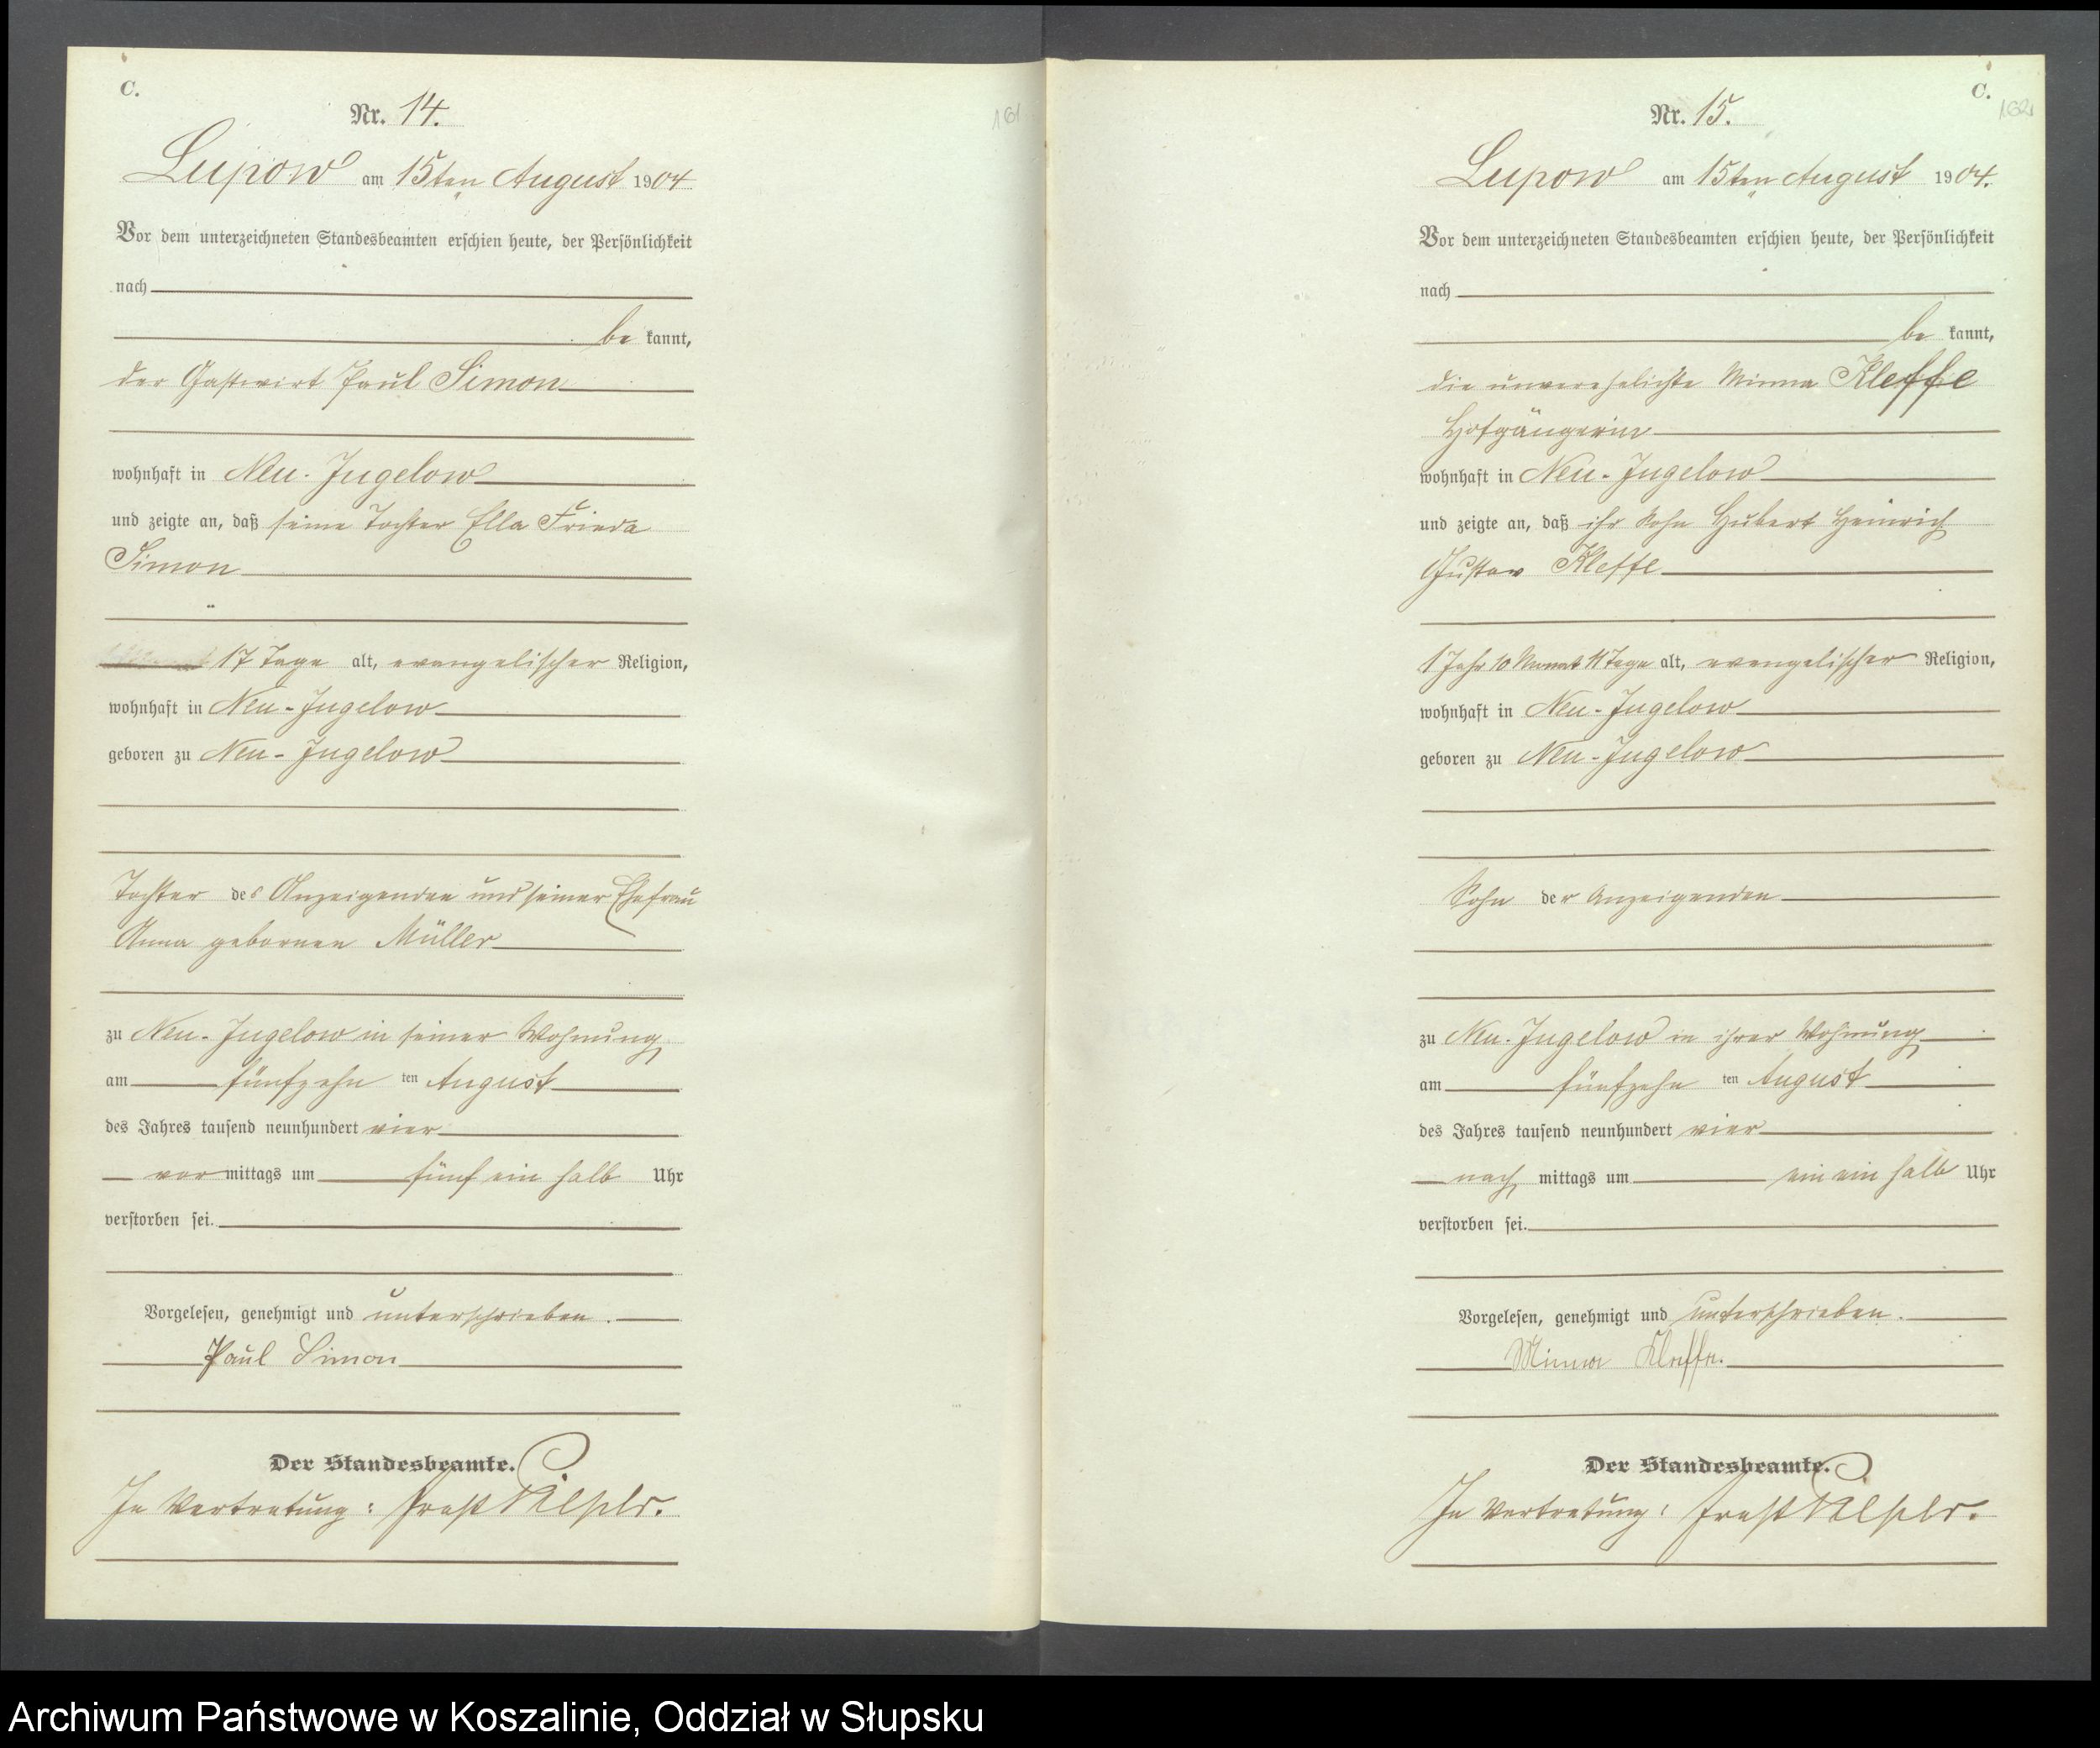 C.
Nr. 14.
161
Lupow am 15ten August 1904
Vor dem unterzeichneten Standesbeamten erschien heute, der Persönlichkeit
nach
be kannt,
der Gastwirt Paul Simon
wohnhaft in Neu-Jugelow
und zeigte an, daß seine Tochter Ella Frieda
Simon
17 Tage alt, evangelischer Religion,
wohnhaft in Neu-Jugelow
geboren zu Neu-Jugelow
Tochter des Anzeigenden und seiner Ehefrau
Anna gebornen Müller
zu Neu-Jugelow in seiner Wohnung
am fünfzehn ten August
des Jahres tausend neunhundert vier
vor mittags um fünf ein halb Uhr
verstorben sei.
Vorgelesen, genehmigt und unterschrieben.
Paul Simon
Der Standesbeamte.
In Vertretung:
C.
Nr. 15.
162
Lupow am 15ten August 1904.
Vor dem unterzeichneten Standesbeamten erschien heute, der Persönlichkeit
nach
be kannt,
die unverehelichte Minna Kleffe
Hofgängerin
wohnhaft in Neu-Jugelow
und zeigte an, daß ihr Sohn Hubert Heinrich
Gustav Kleffe
1 Jahr 10 Monat 11 Tage alt, evangelischer Religion,
wohnhaft in Neu-Jugelow
geboren zu Neu-Jugelow
Sohn der Anzeigenden
zu Neu-Jugelow in ihrer Wohnung
am fünfzehn ten August
des Jahres tausend neunhundert vier
nach mittags um ein ein halb Uhr
verstorben sei.
Vorgelesen, genehmigt und unterschrieben.
Minna Kleffe.
Der Standesbeamte.
In Vertretung:
Archiwum Państwowe w Koszalinie, Oddział w Słupsku